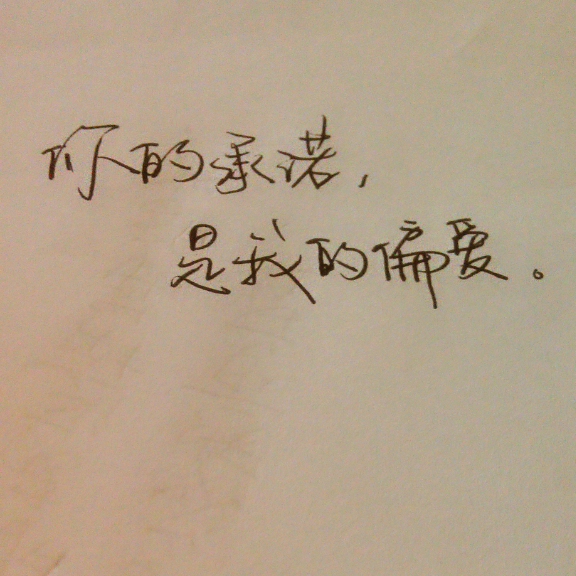 你的承诺，
是我的偏爱。